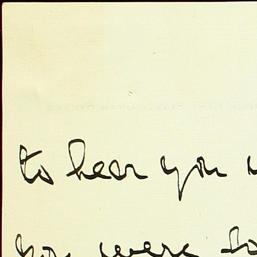 to hear you
you were so